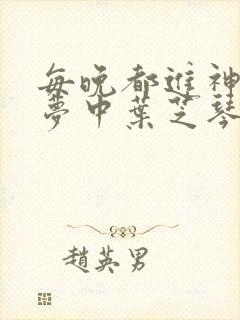 每晚都進神
夢中葉芝琴
趙英男